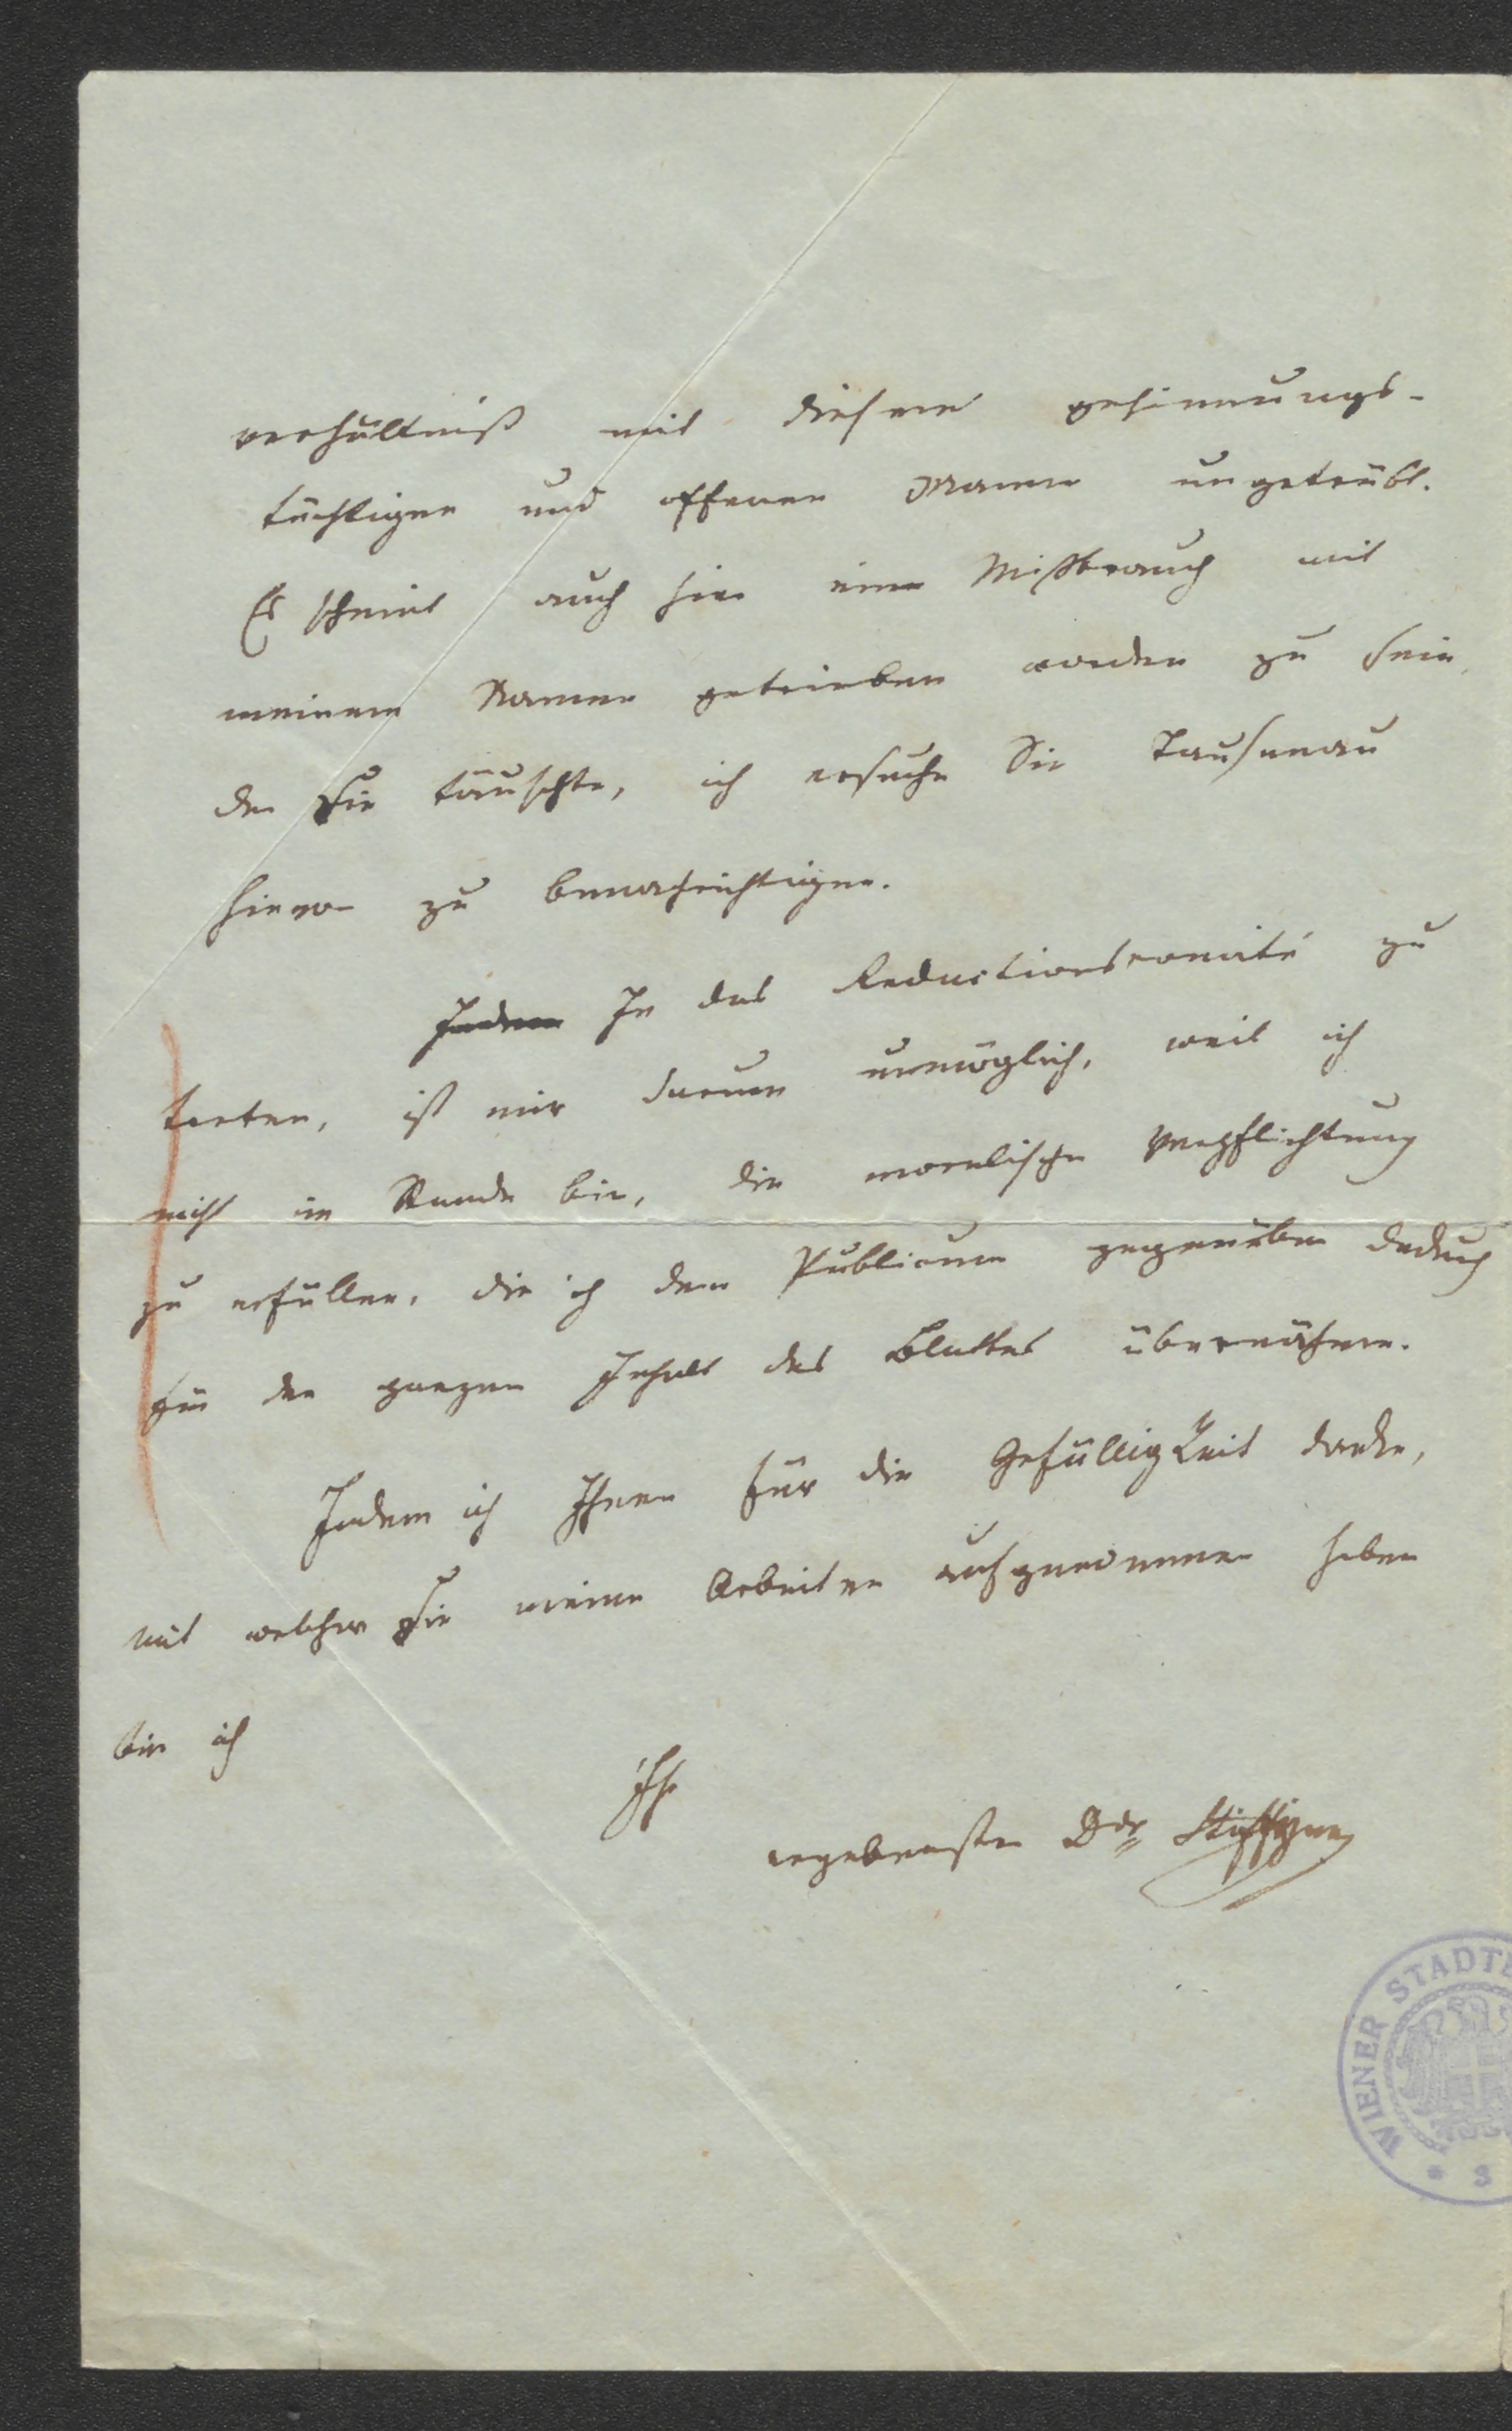 verhältniß mit diesem gesinnungs-
tüchtigen und offenen Manne ungetrübt.
Es scheint auch hier ein Mißbrauch mit
meinem Namen getrieben worden zu sein,
der Sie täuschte, ich ersuche Sie Tausenau
hievon zu benachrichtigen.
Indem In das Redactionscomité zu
treten, ist mir darum unmöglich, weil ich
nicht im Stande bin, die moralische Verpflichtung
zu erfüllen, die ich dem Publicum gegenüber dadurch
für den ganzen Inhalt des Blattes übernähme.
Indem ich Ihnen für die Gefälligkeit danke,
mit welcher Sie meine Arbeiten aufgenommen haben
bin ich
Ihr
ergebenster Ddr
WIENER STADTB
* 3